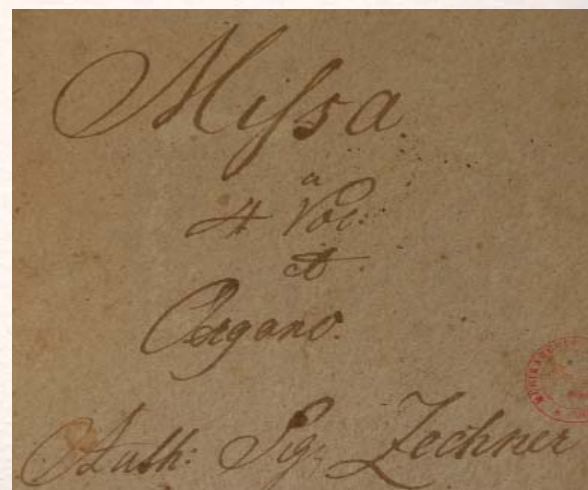 Missa.
a
4 Voc:
et
Organo.
Auth: Sig: Zechner